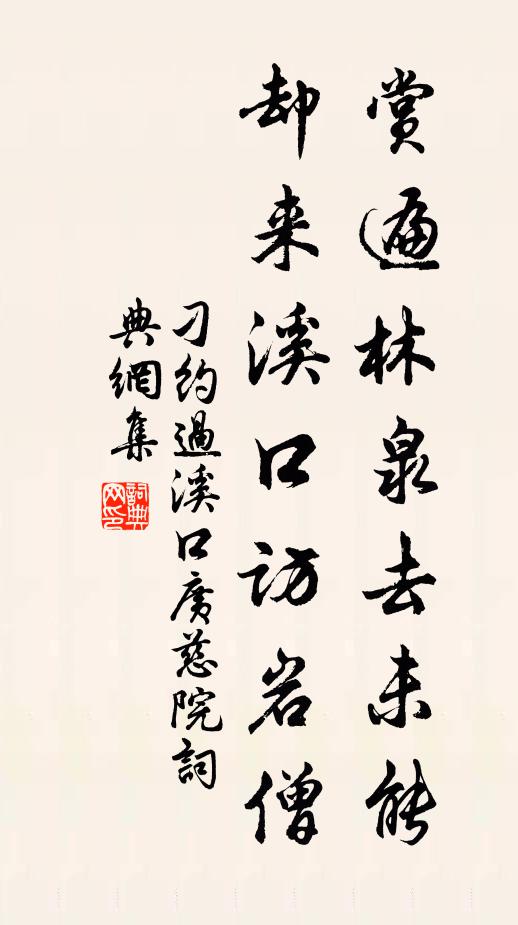 賞遍林泉去未能
却来溪口訪岩僧
刁約過溪口廣慈院詞
典網集
詞典网印